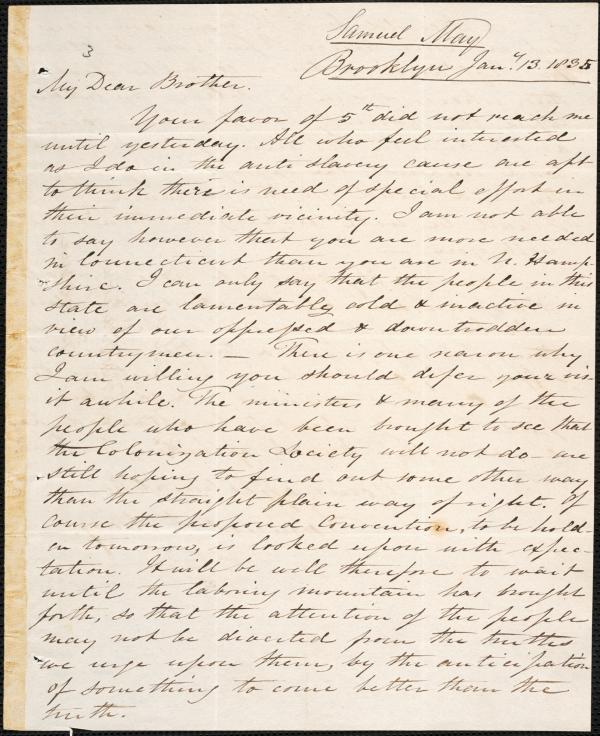 3
Samuel May
Brooklyn Jany. 13. 1835
My Dear Brother.
Your favor of 5th did not reach me
until yesterday. All who feel interested
as I do in the anti slavery cause are apt
to think there is need of special effort in
their immediate vicinity. I am not able
to say however that you are more needed
in Connecticut than you are in N. Hamp-
shire. I can only say that the people in this
state are lamentably cold & inactive in
view of our oppressed & downtrodden
countrymen. — There is one reason why
I am willing you should defer your vis-
it awhile. The ministers & many of the
people who have been brought to see that
the Colonization Society will not do - are
still hoping to find out some other way
than the straight plain way of right. Of
course the proposed Convention, to be hold-
en tomorrow, is looked upon with expec-
tation. It will be well therefore to wait
until the laboring mountain has brought
forth, so that the attention of the people
may not be diverted from the truths
we urge upon them, by the anticipation
of something to come better than the
truth.